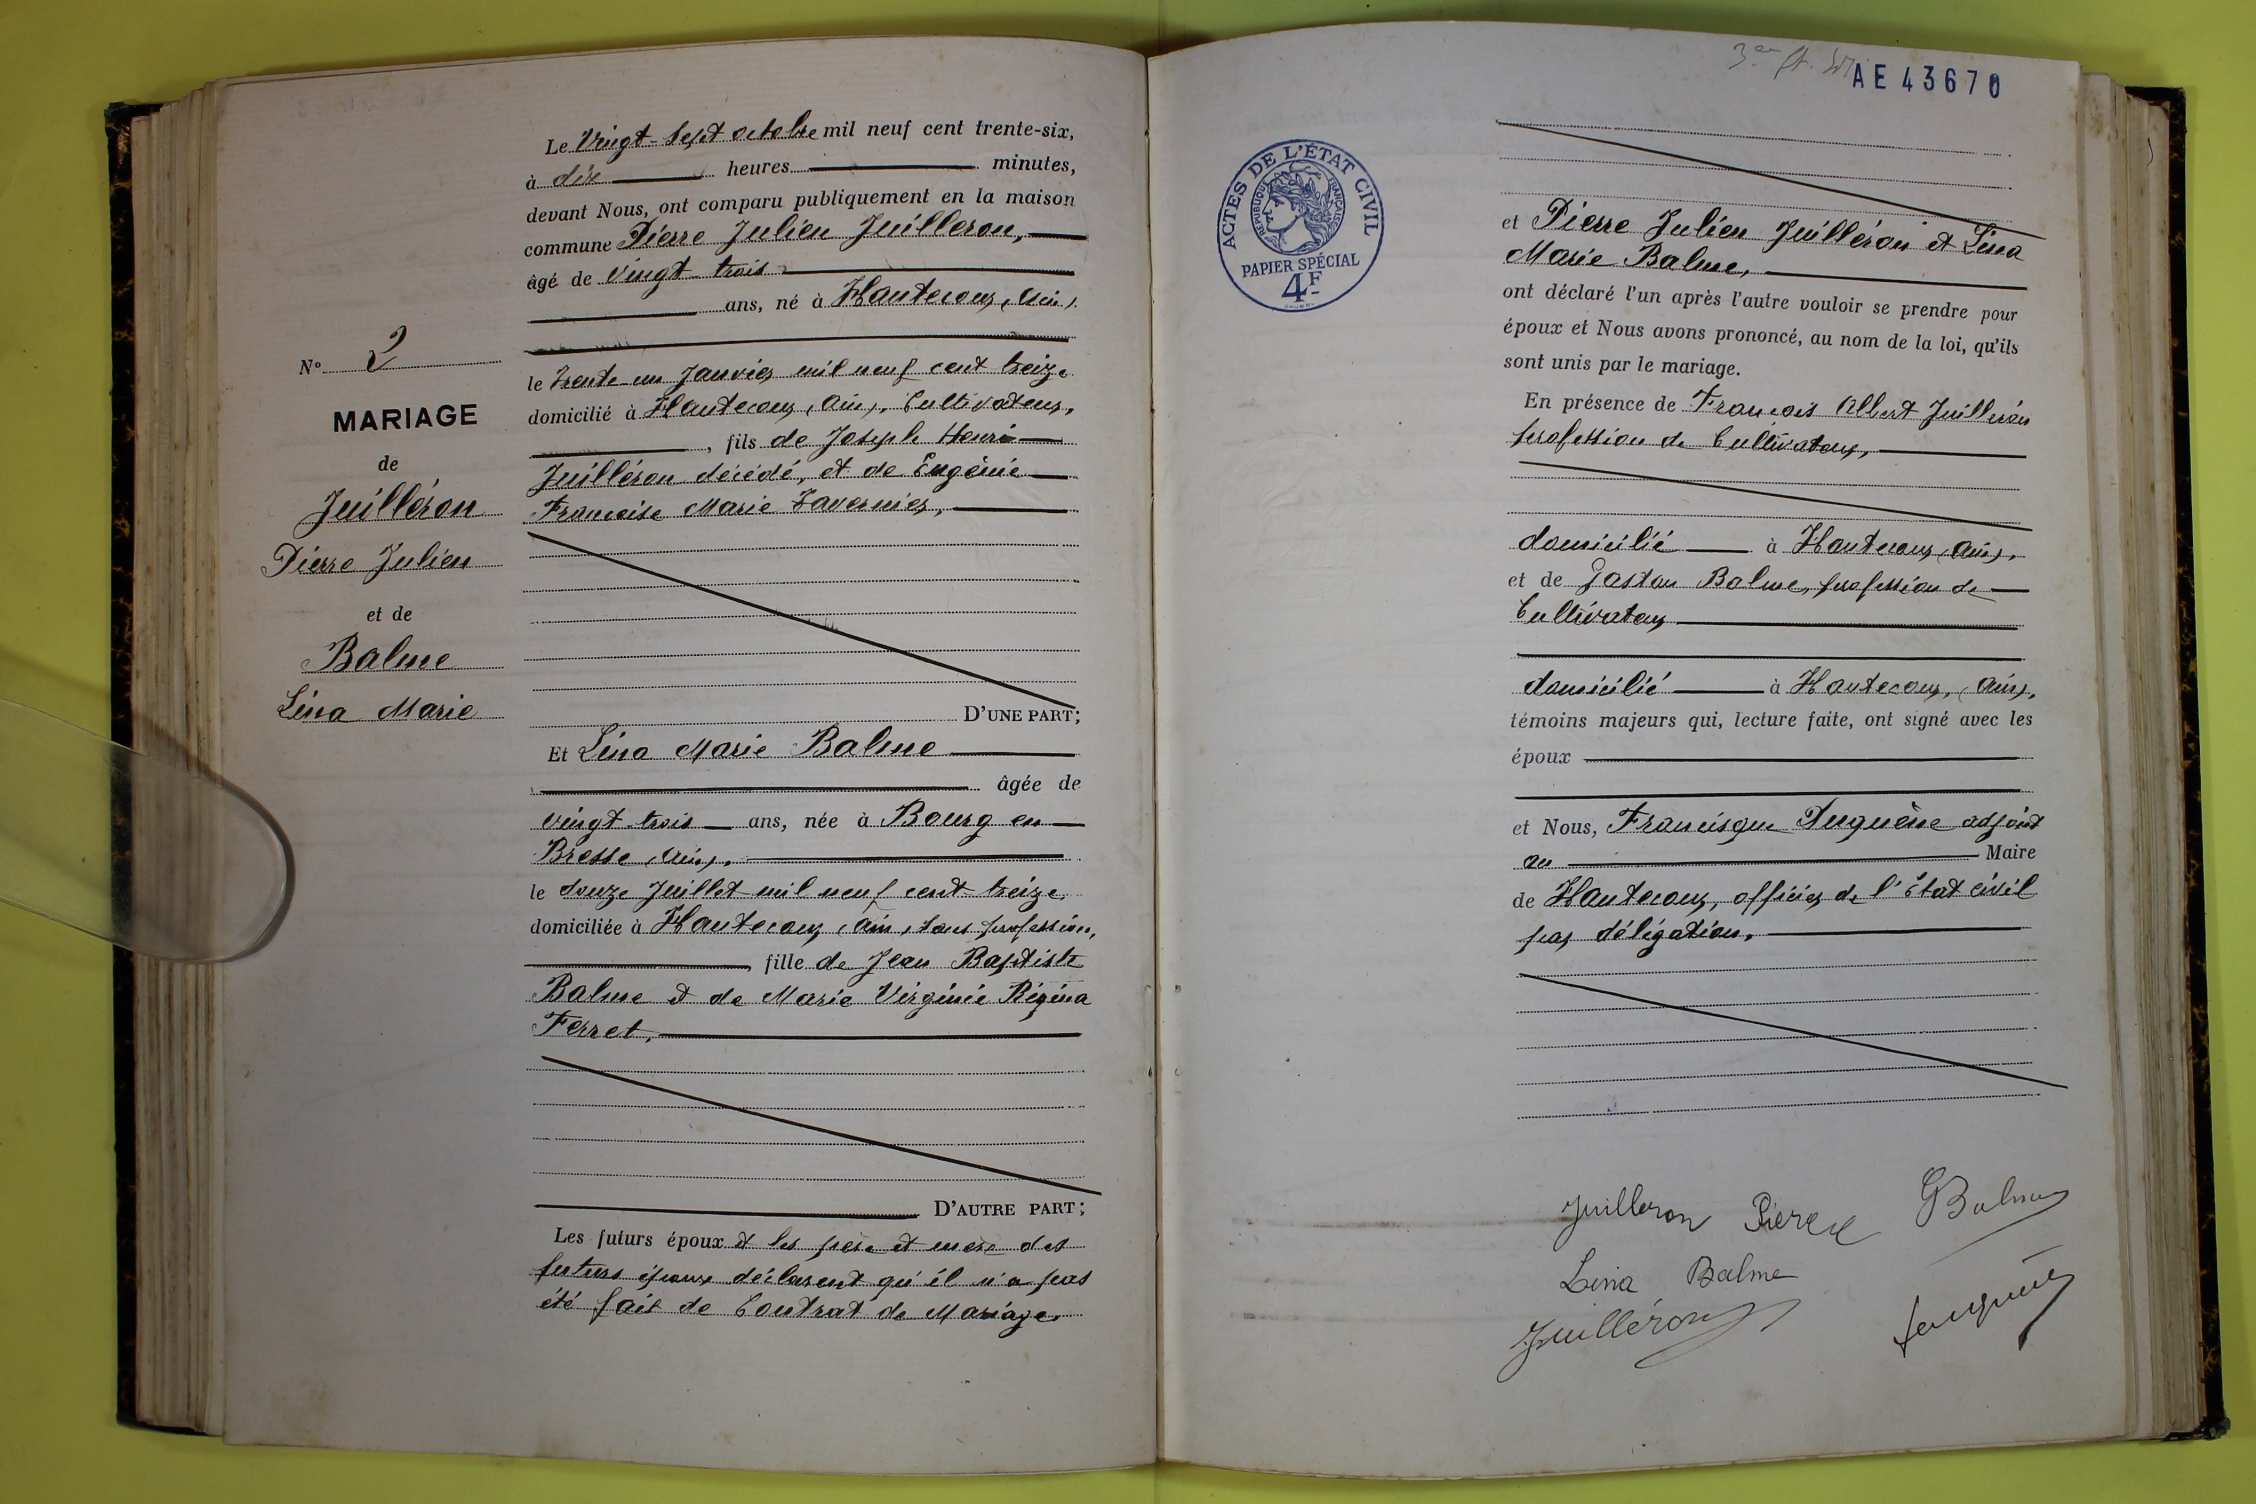 Le Vingt-Sept octobre mil neuf cent trente-six,
à dix heures minutes,
devant Nous, ont comparu publiquement en la maison
commune Pierre Julien Juilleron,
âgé de vingt-trois
ans, né à Hautecour, (Ain).
le trente-un Janvier mil neuf cent treize
domicilié à Hautecour, (Ain), Cultivateur,
, fils de Joseph Henri
Juilléron décédé, et de Eugénie
Françoise Marie Tavernier,
D'UNE PART;
N° 2
MARIAGE
de
Juilléron
Pierre Julien
et de
Balme
Lina Marie
Et Lina Marie Balme
âgée de
vingt-trois ans, née à Bourg en
Bresse (Ain),
le douze Juillet mil neuf cent treize,
domiciliée à Hautecour (Ain), sans profession,
, fille de Jean Baptiste
Balme et de Marie Virginie Régina
Ferret,
D'AUTRE PART;
Les futurs époux et les père et mère des
futurs époux déclarent qu'il n'a pas
été fait de Contrat de Mariage.
AE 43670
ACTES DE L'ÉTAT CIVIL
RÉPUBLIQUE FRANÇAISE
PAPIER SPÉCIAL
4F
et Pierre Julien Juilléron et Lina
Marie Balme,
ont déclaré l'un après l'autre vouloir se prendre pour
époux et Nous avons prononcé, au nom de la loi, qu'ils
sont unis par le mariage.
En présence de François Albert Juilléron
profession de Cultivateur,
domicilié à Hautecour (Ain),
et de Gaston Balme, profession de
Cultivateur
domicilié à Hautecour, (Ain),
témoins majeurs qui, lecture faite, ont signé avec les
époux
et Nous, Francisque Duguène adjoint
au Maire
de Hautecour, officier de l'État civil
par délégation.
Juilleron Pierre GBalme
Lina Balme
Juilléron